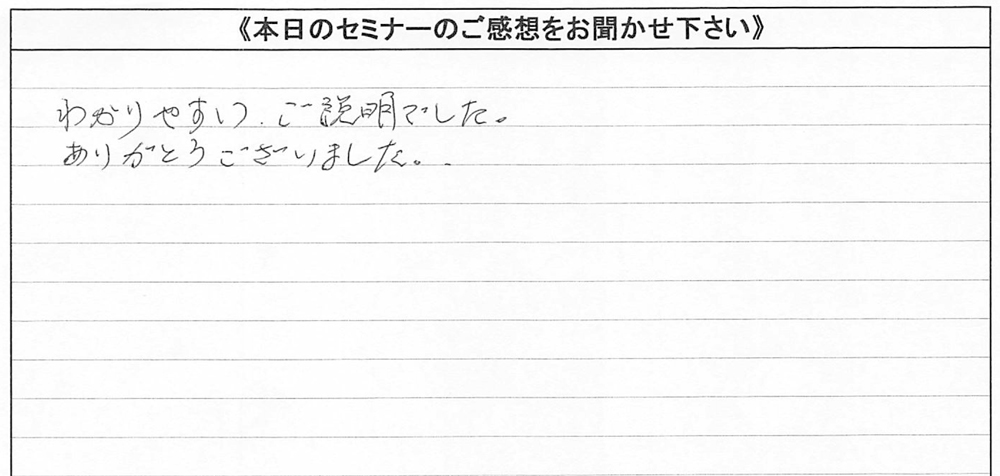 《本日のセミナーのご感想をお聞かせ下さい》
わかりやすい、ご説明でした。
ありがとうございました。